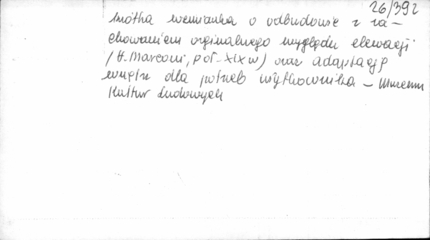 26/392
krótka wzmianka o odbudowie z za-
chowaniem orginalnego wyglądu elewacji
/H. Marconi, poł. XIX w/ oraz adaptacją
wnętrz dla potrzeb użytkownika – Muzeum
Kultur Ludowych